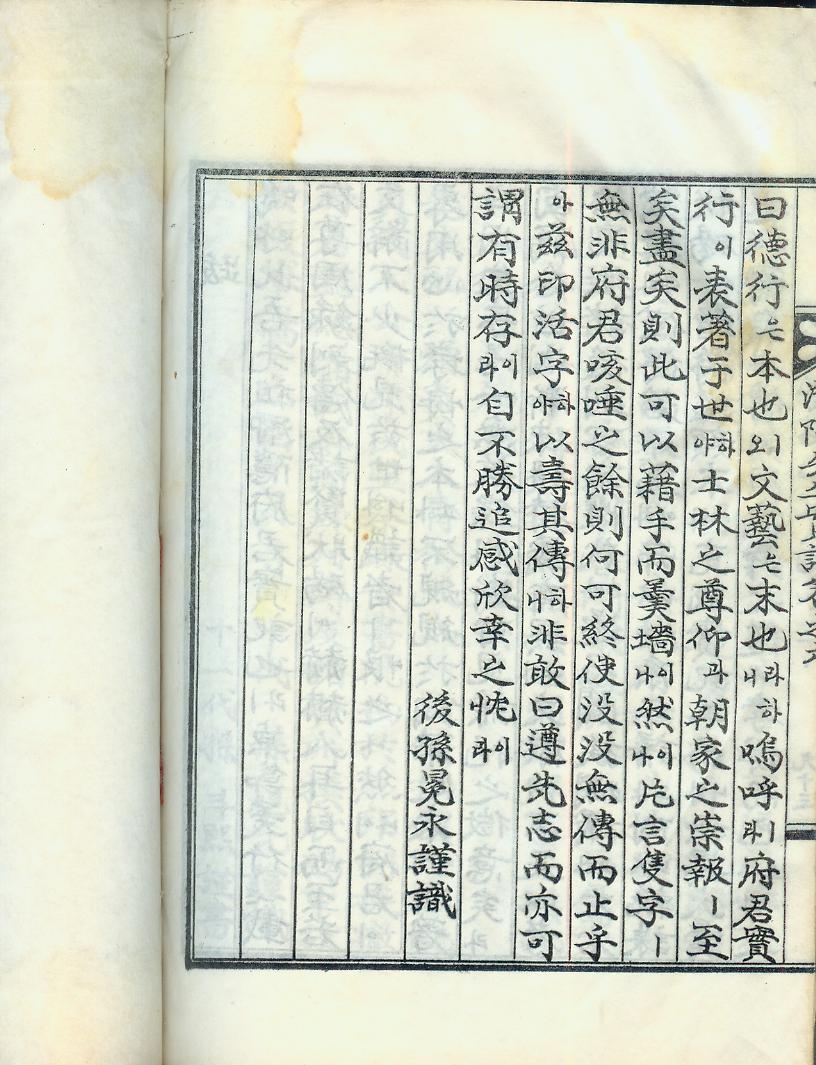 曰德行은本也ㅣ오文藝는末也라하니嗚呼ㅣ라府君實
行이表著于世하야士林之尊仰과朝家之崇報ㅣ至
矣盡矣則此可以藉手而羹墻이나然이나片言隻字ㅣ
無非府君咳唾之餘則何可終使没没無傳而止乎
아兹印活字하야以壽其傳하니非敢曰遵先志而亦可
謂有時存이라自不勝追感欣幸之忱이라
後孫冕永謹識